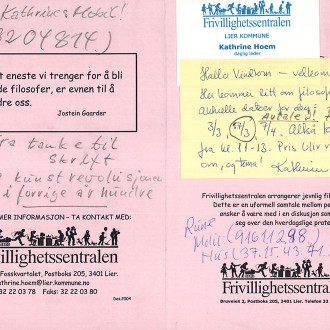 Kathrines Mobil!
3204814.)
t eneste vi trenger for å bli
de filosofer, er evnen til å
dre oss.
Jostein Gaarder
tanke til
skrift
kunst revolusjon
i forrige århundre
MER INFORMASJON - TA KONTAKT MED:
ivillighetssentralen
Fosskvartalet, Postboks 205, 3401 Lier.
athrine.hoem@lier.kommune.no
32 22 03 78 Faks: 32 22 03 80
Des.2004
Frivillighetssentralen
LIER KOMMUNE
Kathrine Hoem
daglig leder
Hallo
Her kommer litt om filosofi
aktuelle datoer for deg i
Avtale d!
3/3, 17/3 7/4. Altså
fra kl. 11-13. Pris blir v
om, og tema!
Kathrine
Frivillighetssentralen arrangerer jevnlig fil
Dette er en uformell samtale mellom pe
ønsker å være med i en diskusjon som
seg over den hverdagslige prate
Rune
Mobil (91611298)
Hus (37.15.43.71.)
Frivillighetssentralen
Bruveien 2, Postboks 205, 3401 Lier. Telefon 32